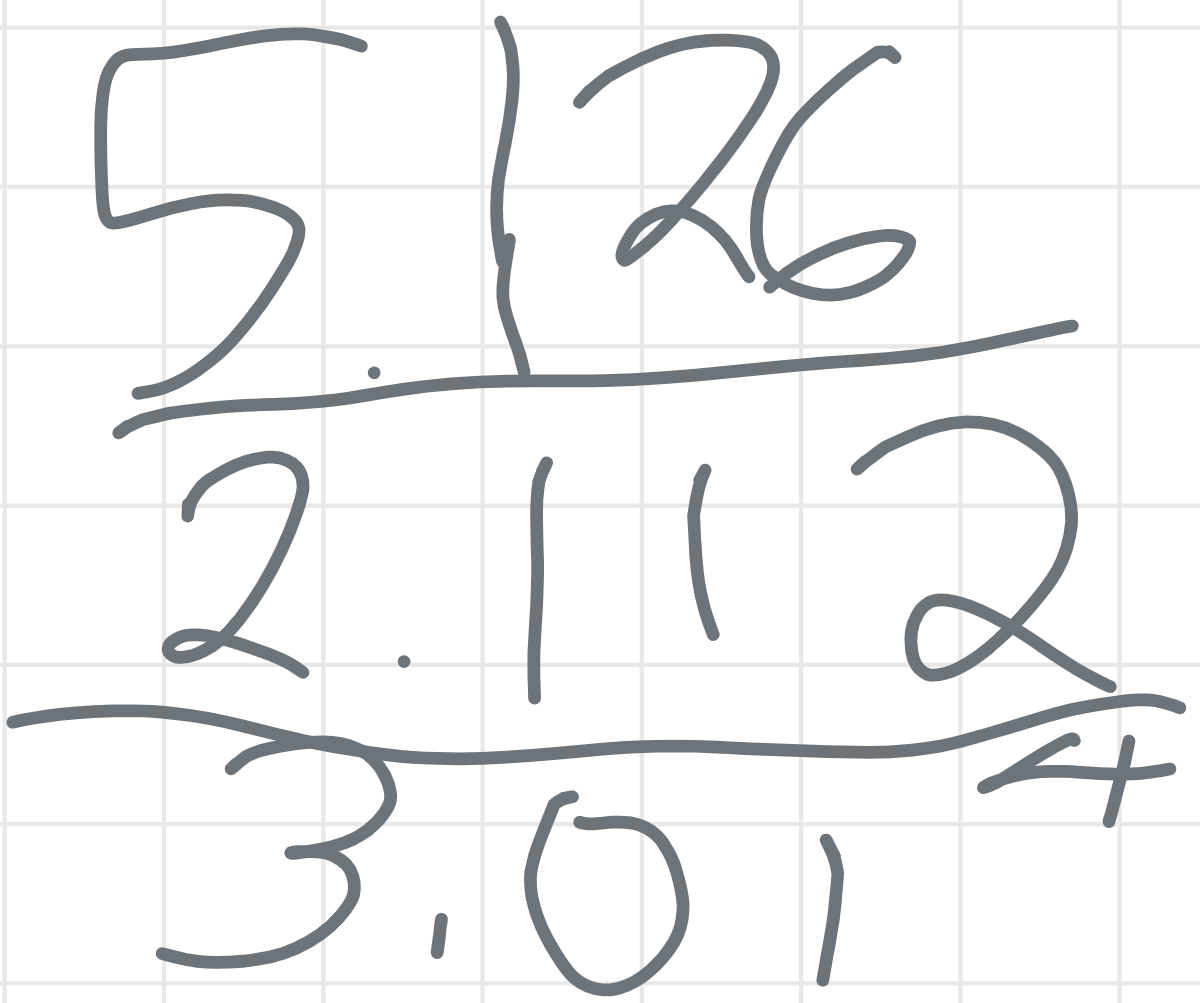 5.126
2.112
3.014